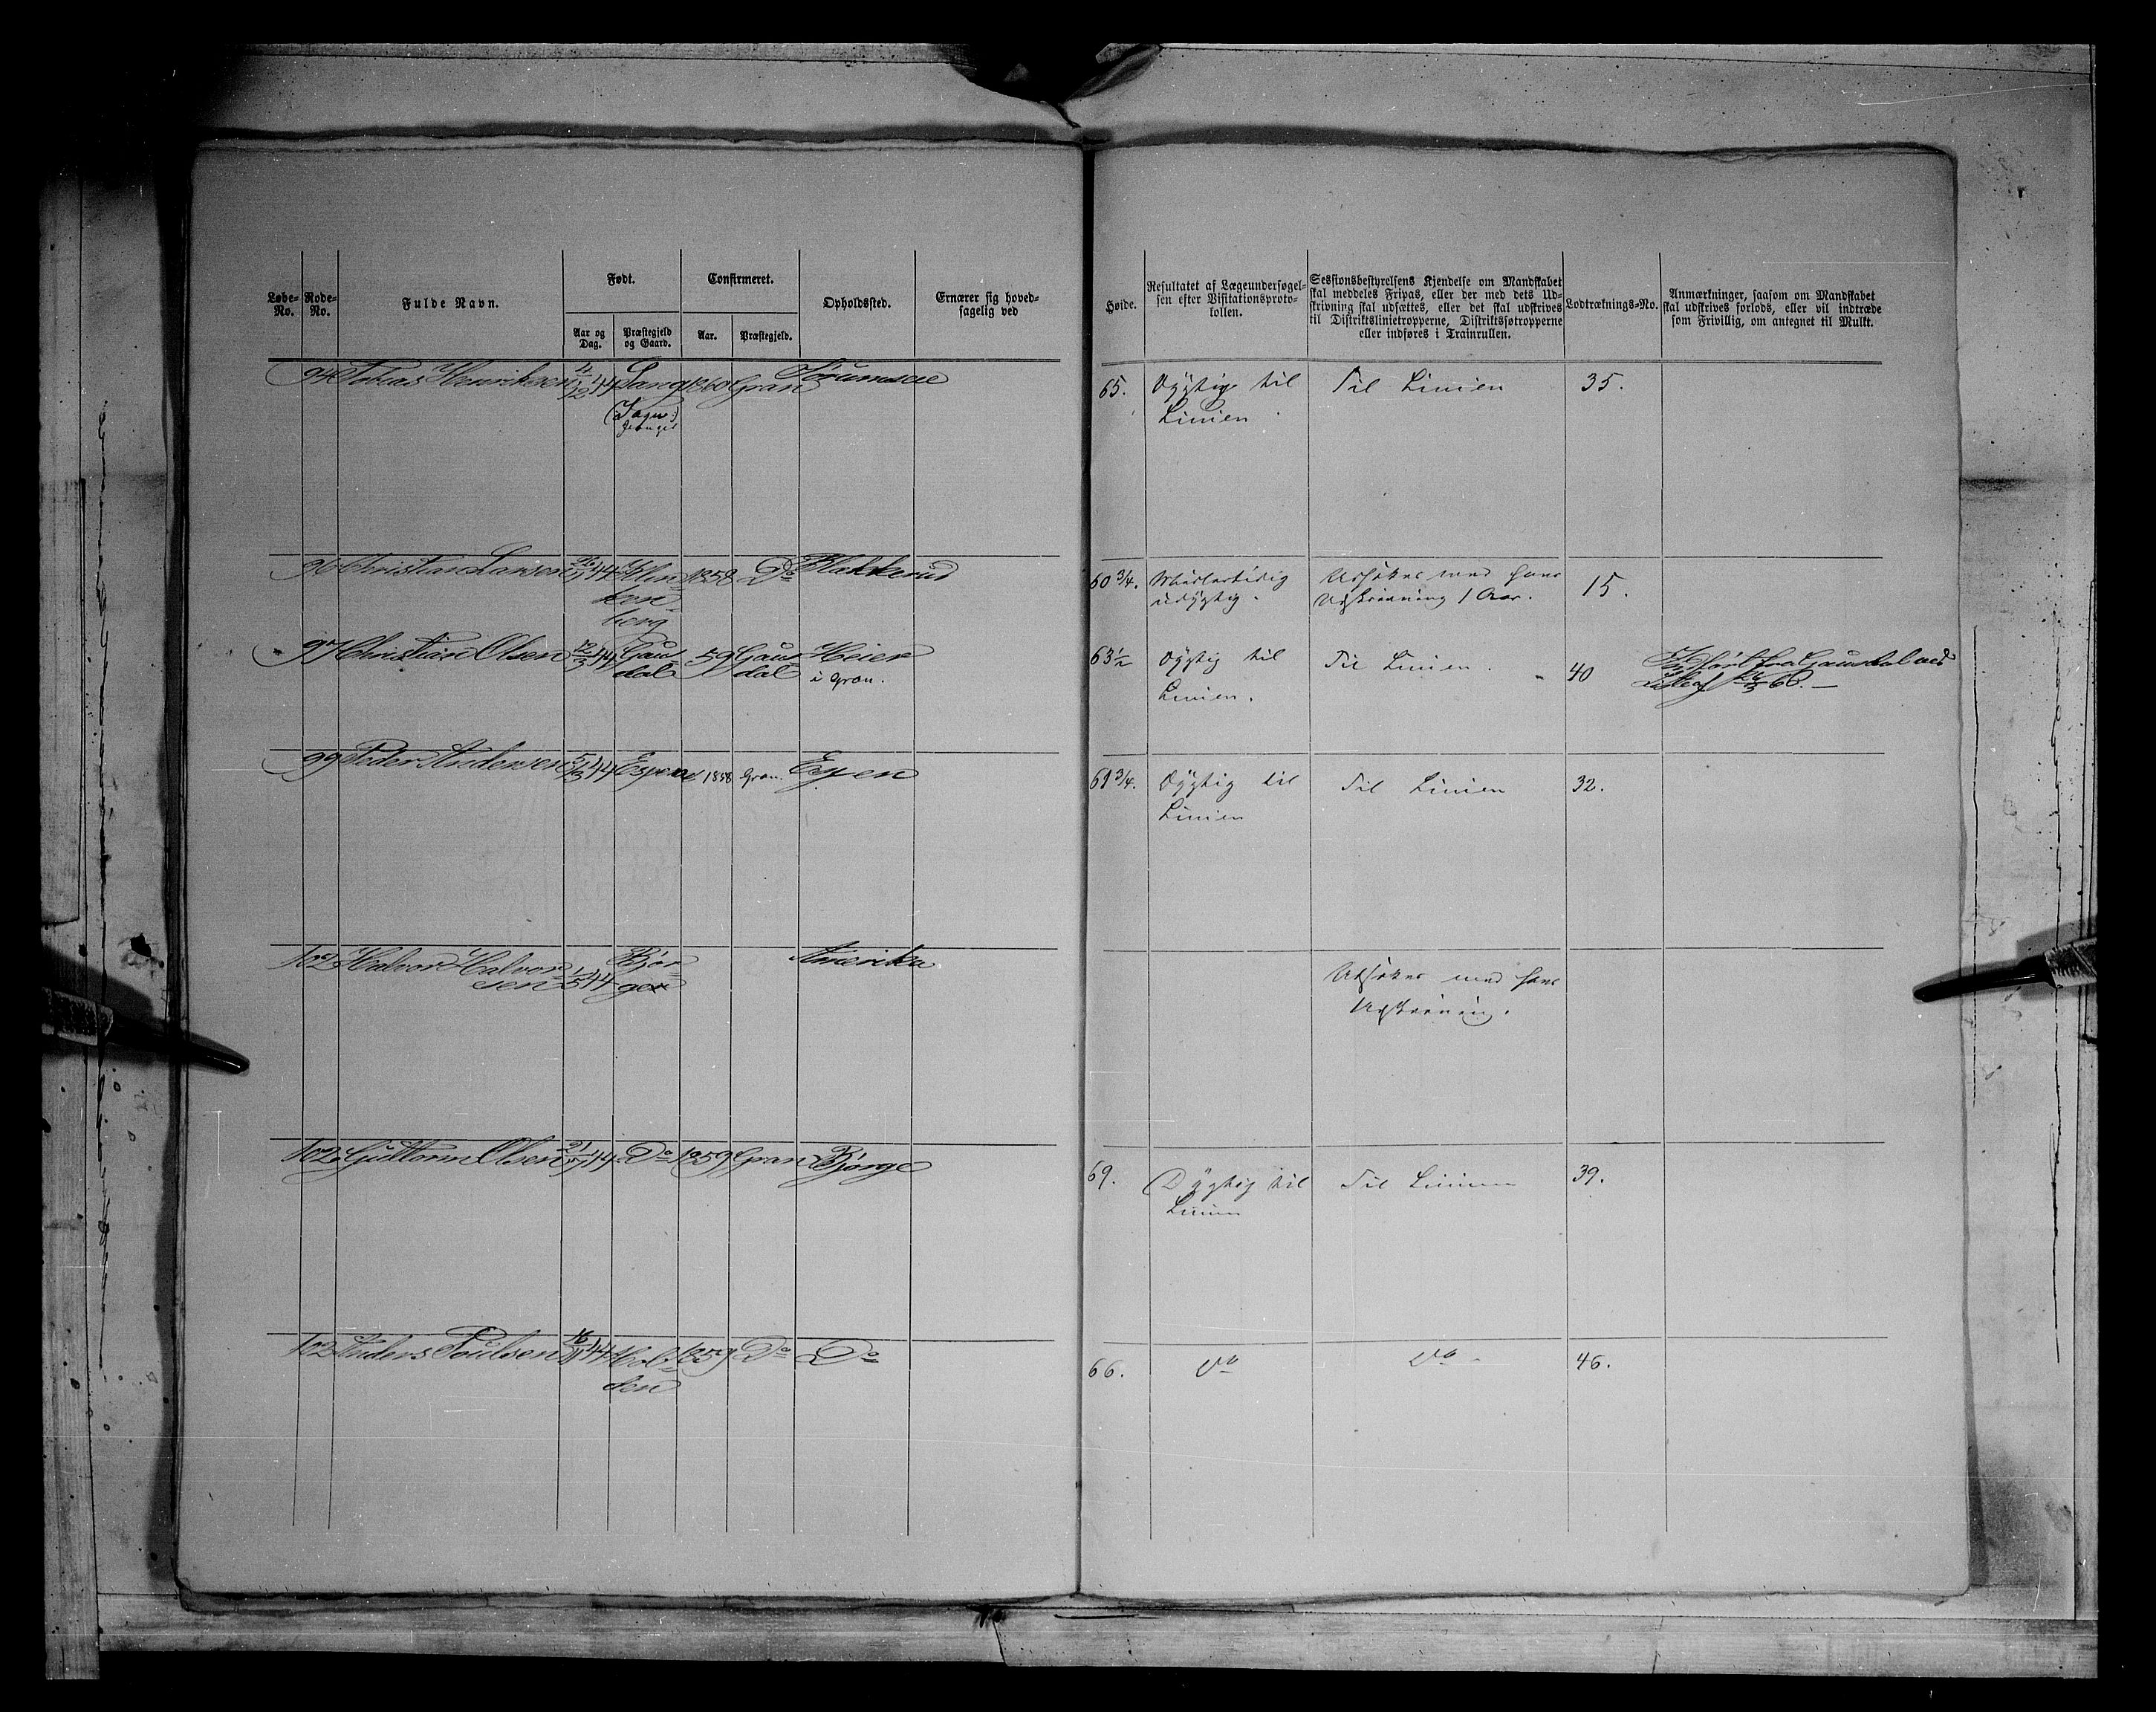 Løbe-No.
Rode-No.
Fulde Navn.
Født.
Aar og Dag.
Præstegjeld og Gaard.
Confirmeret.
Aar.
Præstegjeld.
Opholdssted.
Ernærer sig hoved-
sagelig ved
Høide.
Resultatet af Lægeundersøgel-
sen efter Visitationsproto-
kollen.
Sessionsbestyrelsens Kjendelse om Mandskabet
skal meddeles Fripas, eller der med dets Ud-
skrivning skal udsættes, eller det skal udskrives
til Distriktslinietropperne, Distriktssøtropperne
eller indføres i Trainrullen.
Lodtræknings-No.
Anmærkninger, saasom om Mandskabet
skal udskrives forlods, eller vil indtræde
som Frivillig, om antegnet til Mulkt.
94 Tobias Henriksen 4/12 44 1860 Gran Sørumseie 65. Dygtig til Til Linien 35.
Linien
96 Christian Larsen 44 Klin- 1858 Do Blakkerud 60 3/4. Midlertidig Udsættes med hans 15.
ken- udygtig. Udskrivning 1 Aar.
berg
97 Christian Olsen 12/3 44 Gaus- 59 Gaus- Heier 63 1/2 Dygtig til Til Linien. 40 Indført fra Gausdal ved
dal dal i Gran. Linien. 66.—
99 Peder Andersen 5/3 44 Espen 1858 Gran. Egen 61 3/4. Dygtig til Til Linien 32.
Linien
102 Halvor Halvor- 1/5 44 Bjør- Amerika Udsættes med hans
sen ge Udskrivning.
102 Guttorm Olsen 21/7 44 Do 1859 Gran Bjørge 69. Dygtig til Til Linien 39.
Linien
102 Anders Poulsen 44 1859 Do Do 66. Do Do 46.